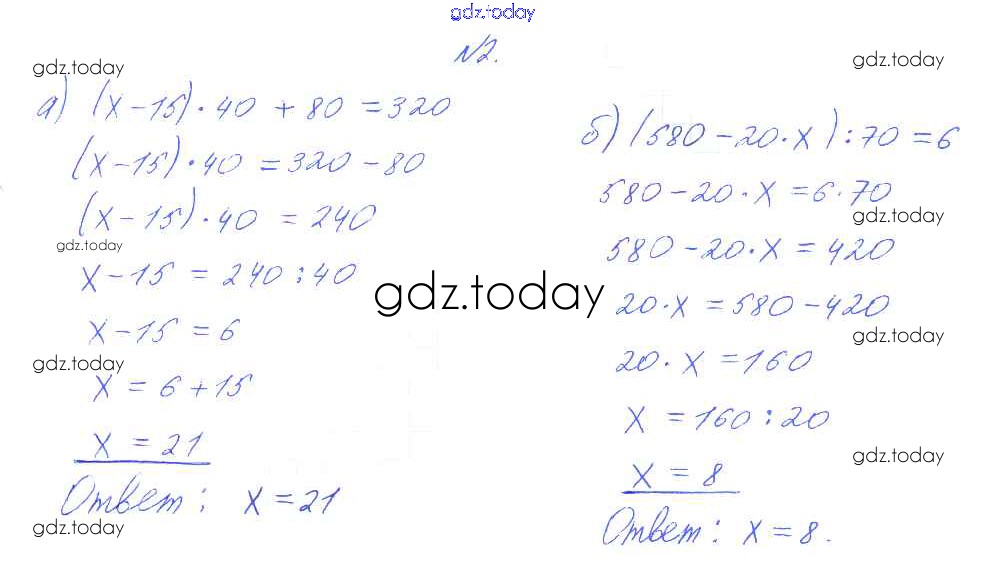 gdz.today
№2.
gdz.today
gdz.today
а) (x-15)·40 + 80 = 320
(x-15)·40 = 320 - 80
(x-15)·40 = 240
gdz.today
x-15 = 240 : 40
gdz.today
x-15 = 6
gdz.today
x = 6 + 15
x = 21
Ответ: x = 21
gdz.today
б) (580 - 20·x) : 70 = 6
580 - 20·x = 6·70
gdz.today
580 - 20·x = 420
20·x = 580 - 420
gdz.today
20·x = 160
x = 160 : 20
gdz.today
x = 8
Ответ: x = 8.